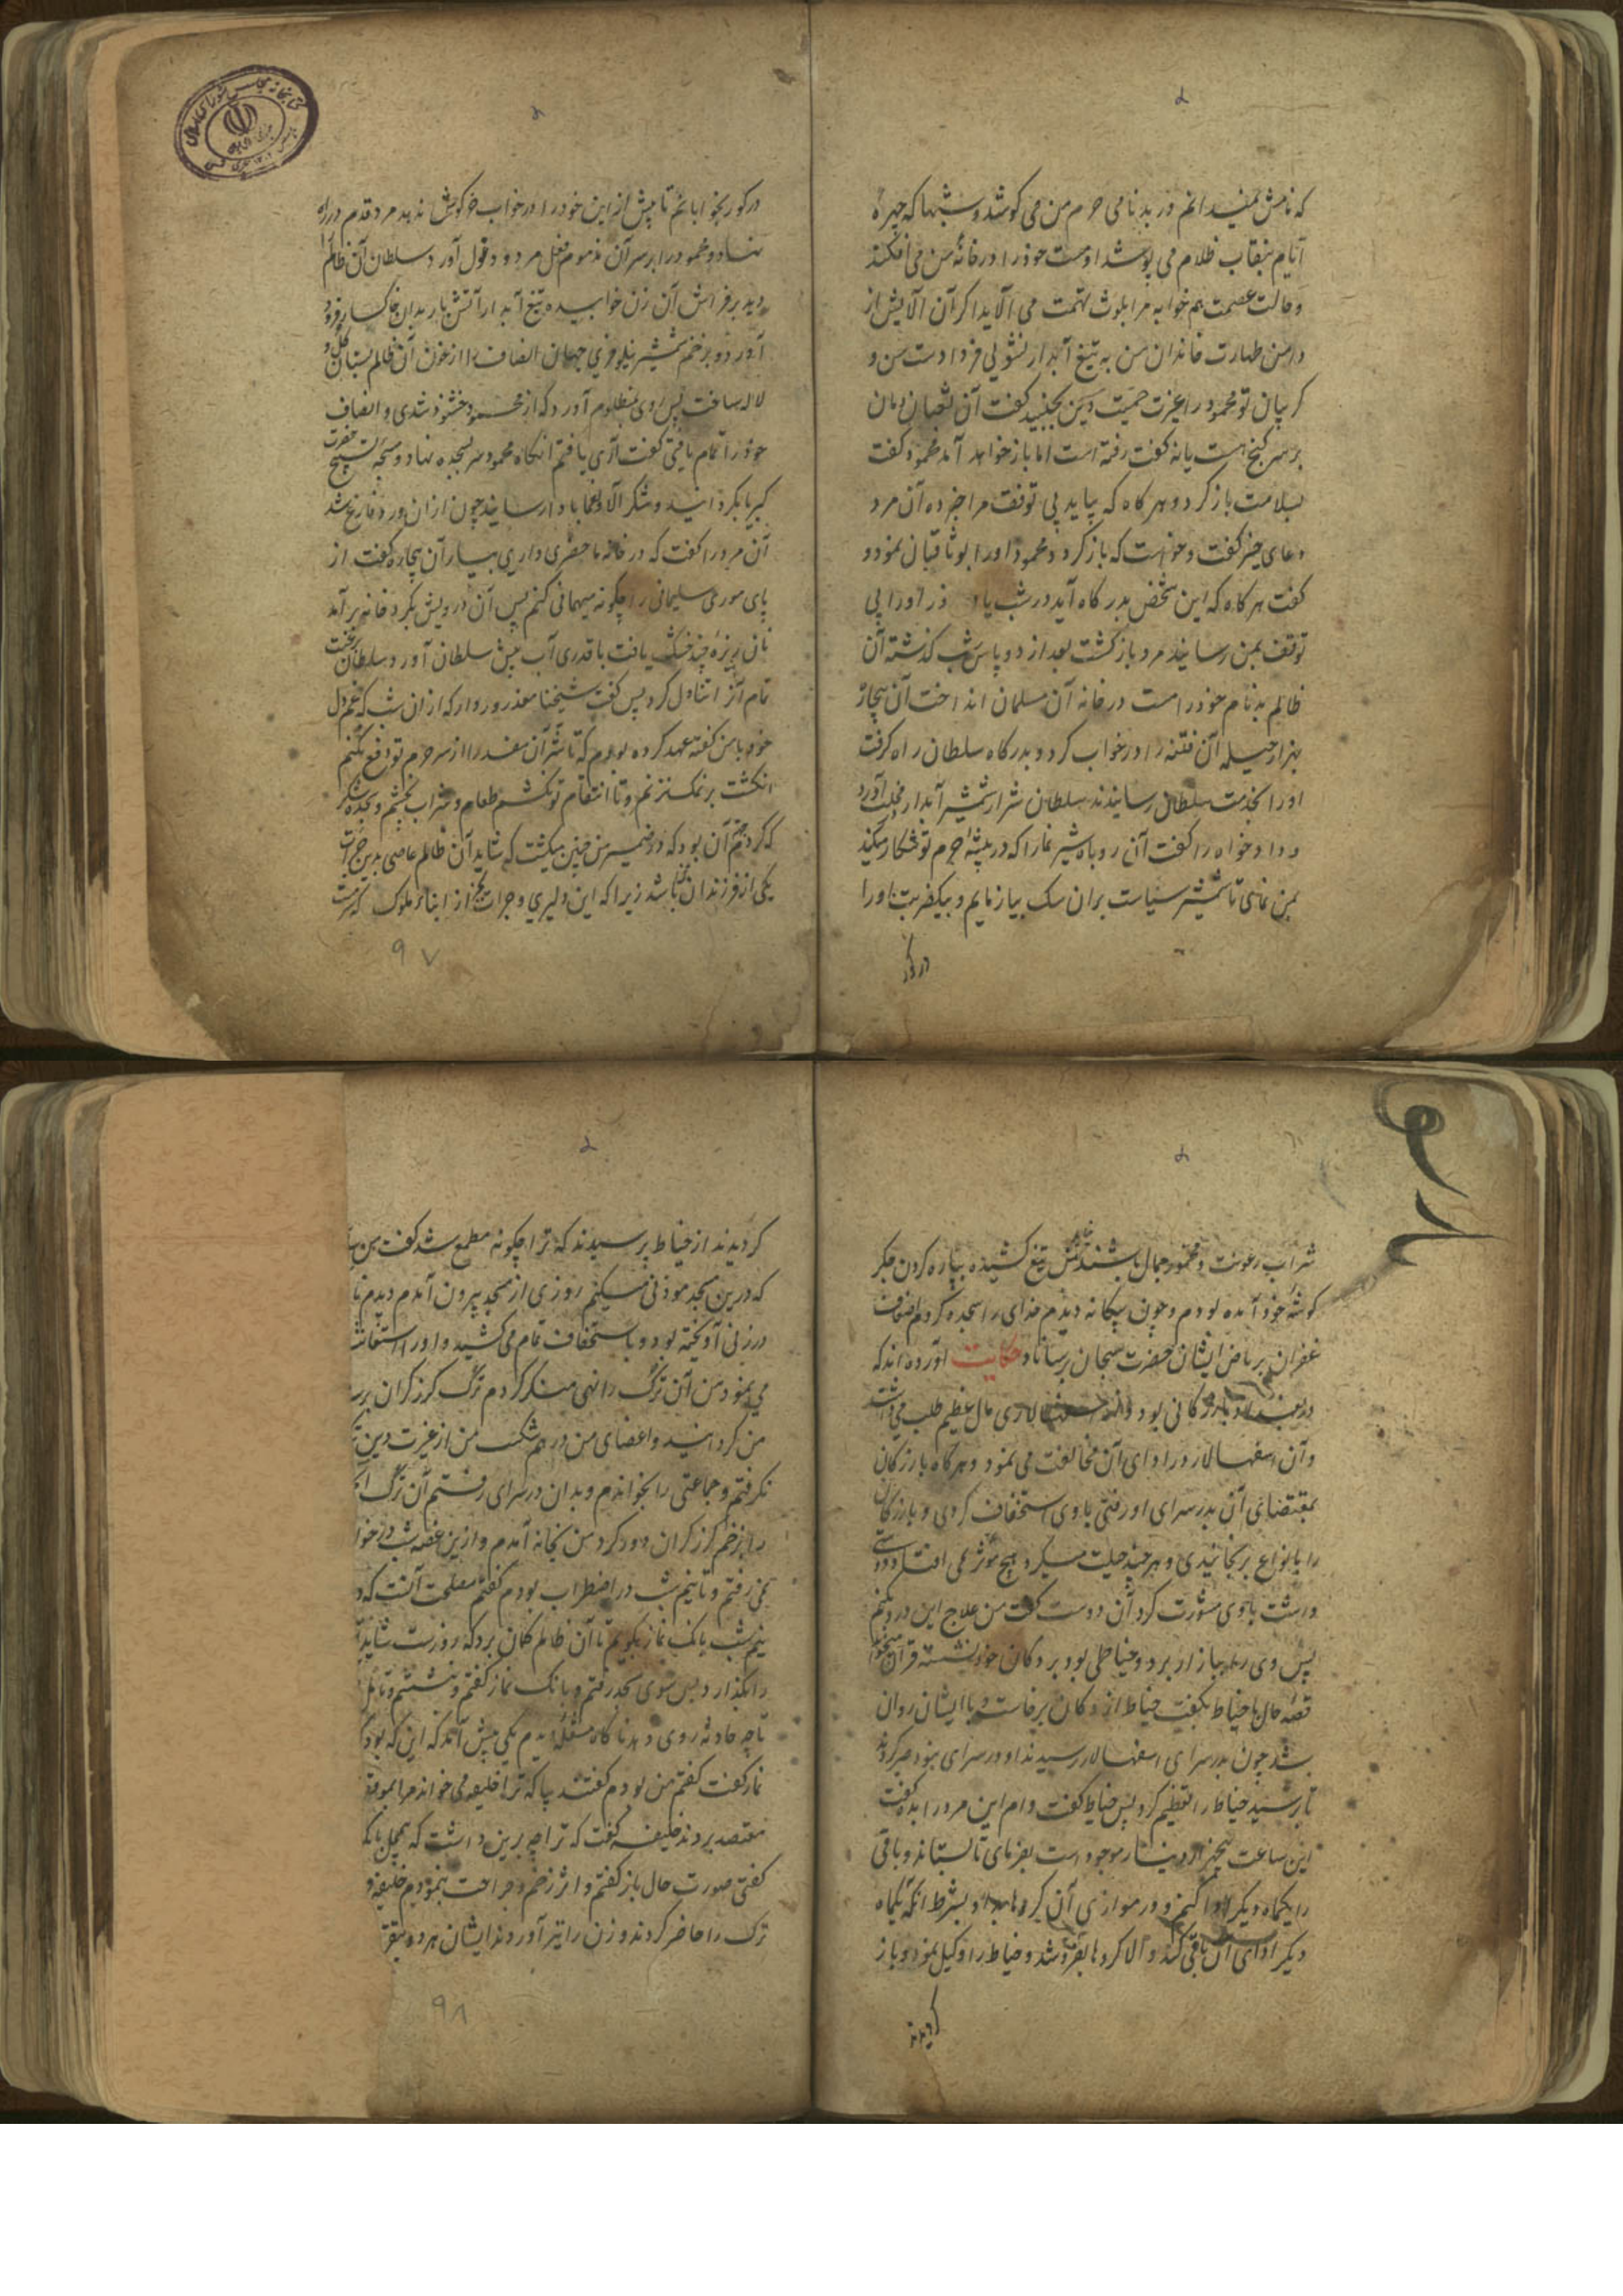 که نامش نمیدانم در بدنامی حرم من می کوشد و شبها که چهره
ایام بنقاب ظلام می پوشد او مست خود را در خانهٔ من می افکند
و حالت عصمت هم خوابه مرا بلوث تهمت می آلاید اگر آن آلایش از
دامن طهارت خاندان من به تیغ آبدار نشویی فردا دست من و
کریبان تو محمود را غیرت حمیت دین بجنبید گفت آن ثعبان دمان
بر سر گنج هست یا نه گفت رفته است اما باز خواهد آمد محمود گفت
بسلامت باز کرد و هر گاه که بیاید بی توقف مرا خبر ده آن مرد
دعای خیر گفت و خواست که باز کردد محمود او را بوثاقیان نمود و
گفت هر گاه که این شخص بدر گاه آید در شب یا در روز او را بی
توقف بمن رسانید مرد باز گشت بعد از دو پاس شب گذشته آن
ظالم بدنام خود را مست در خانه آن مسلمان انداخت آن بیچاره
بهزار حیله آن فتنه را در خواب کرد و بدرگاه سلطان راه گرفت
او را بخدمت سلطان رسانیدند سلطان شرار شمشیر آبدار آورد
و دادخواه را گفت آن روباه شیر نما را که در بیشهٔ حرم تو شکار میکند
بمن نمای تا شمشیر سیاست بران سک بیازمایم و بیکضربت او را
در کو
در کو بخوابانم تا پیش ازین خود را در خواب خرگوش ندهد مرد قدم در راه
نهاد و محمود را بر سر آن مذموم فعل مردود قول آورد سلطان آن ظالم را
دید بر فراش آن زن خوابیده تیغ آبدار آتش بار بدان خاکسار فرود
آورد و بزخم شمشیر نیلوفری جهان انصاف را از خون آن ظالم بستان گل و
لاله ساخت پس روی بمظلوم آورد که از محمود خشنود شدی و انصاف
خود را تمام یافتی گفت آری یافتم انکاه محمود سر بسجده نهاد و سبحه تسبیح حضرت
کبریا بگردانید و شکر آلا و نعما بادا رسانید چون ازان ورد فارغ شد
آن مرد را گفت که در خانه ما حضری داری بیار آن بیچاره گفت از
پای موری سلیمانی را چگونه میهمانی کنم پس آن درویش بکرد خانه بر آمد
نان ریزهٔ چند خشک یافت با قدری آب پیش سلطان آورد سلطان برغبت
تمام آنرا تناول کرد پس گفت شیخنا معذور دار که ازان شب که غم دل
خود با من گفتهٔ عهد کرده بودم که تا شر آن مفسد را از سر حرم تو دفع نکنم
انکشت بر نمک نزنم و تا انتقام تو نکشم طعام و شراب نچشم و سجده شکر
که کردم آن بود که در ضمیر من چنین میکشت که شاید آن ظالم عاصی بدین جرات
یکی از فرزندان ما باشد زیرا که این دلیری و جرات جز از ابناء ملوک که مست
۹۷
شراب رعونت و مخمور جمال باشند تیغ کشیده بپاره کردن جکر
کوشهٔ خود آمده بودم و چون بیکانه دیدم خدای را سجده کردم اضعاف
غفران بریاض ایشان حضرت سبحان برساناد حکایت آورده اند که
در بغداد بازرگانی بود و از اسفهسالاری مال عظیم طلب می داشت
و آن اسفهسالار در ادای آن مخالفت می نمود و هر گاه بازرکان
بمقتضای آن بدر سرای او رفتی با وی استخفاف کردی و بازرکان
را بانواع برنجانیدی و هر چند حیلت میکرد هیچ موثر نمی افتاد دوستی
داشت با وی مشورت کرد آن دوست گفت من علاج این درد بکنم
پس وی را ببازار برد و خیاطی بود بر دکان خود نشسته قرآن میخواند
قصه حال با خیاط بگفت خیاط از دکان برخاست و با ایشان روان
شد چون بدر سرای اسفهسالار رسیدند او در سرای نبود صبر کردند
تا برسید خیاط را تعظیم کرد پس خیاط گفت وام این مرد را بده گفت
این ساعت پنجهزار دینار موجود است بفرمای تا بستاند و باقی
را یکماه دیگر ادا کنم و در موازی آن کروها بداد بشرط انکه یکماه
دیگر ادای آن باقی کند و الا کروها بفروشد و خیاط را وکیل نمود و باز
کردیدند
کردیدند از خیاط پرسیدند که ترا چگونه مطیع شد گفت من
که درین مسجد موذنی میکنم روزی از مسجد بیرون آمدم دیدم
در زنی آویخته بود و باستخفاف تمام می کشید و او را استغاثت
می نمود من آن ترک را نهی منکر کردم ترک کرز کران بر
من کردانید و اعضای من در هم شکست من از غیرت دین
نکرفتم و جماعتی را بخواندم و بدان در سرای رفتم آن ترک
را بزخم کرز کران دور کرد من بخانه آمدم و ازین غصه شب در خواب
نمی رفتم و تا نیم شب در اضطراب بودم گفتم مصلحت آنست که
نیم شب بانک نماز بگویم تا آن ظالم کمان برد که روزست شاید
را بگذارد پس سوی مسجد رفتم و بانک نماز گفتم و بنشستم و
تا چه حادثه روی دهد ناگاه مشعله دیدم یکی پیش آمد که این که بود
نماز گفت گفتم من بودم گفتند بیا که ترا خلیفه می خواند مرا
معتضد بردند خلیفه گفت که ترا چه برین داشت که بی محل بانک
گفتی صورت حال باز گفتم و اثر زخم و جراحت بنمودم خلیفه
ترک را حاضر کردند و زن را نیز آوردند ایشان هر دو
۹۸